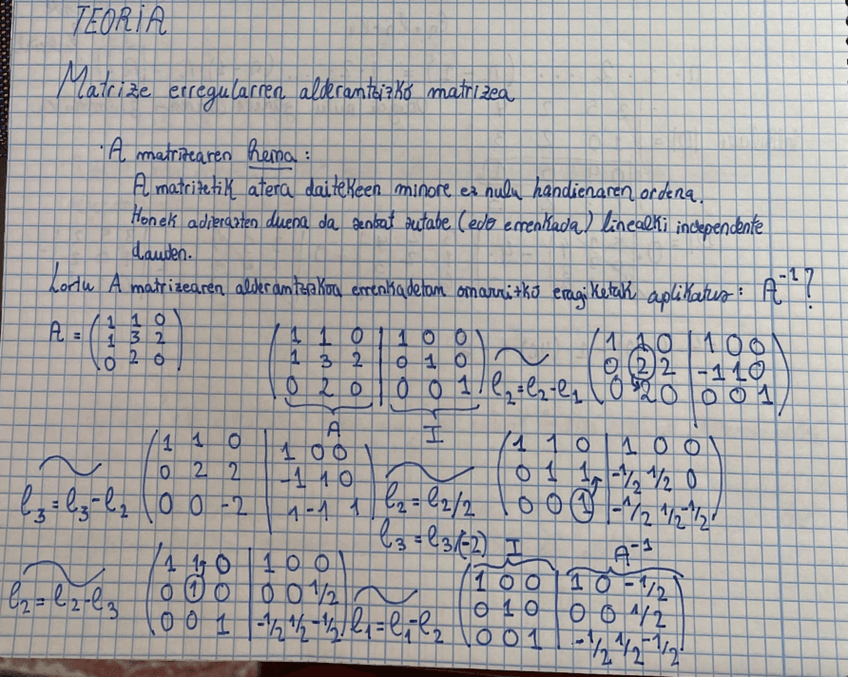 TEORIA
Matrize erregularren alderantzizko matrizea
· A matrizearen heina:
A matrizetik atera daitekeen minore ez nulu handienaren ordena.
Honek adierazten duena da zenbat zutabe (edo errenkada) linealki independente
dauden.
Lortu A matrizearen alderantzizkoa errenkadetan oinarrizko eragiketak aplikatuz: A⁻¹?
A = (1 1 0
1 3 2
0 2 0)
(1 1 0 | 1 0 0
1 3 2 | 0 1 0
0 2 0 | 0 0 1)
A I
~ l₂=l₂-l₁
(1 1 0 | 1 0 0
0 2 2 | -1 1 0
0 2 0 | 0 0 1)
~ l₃=l₃-l₂
(1 1 0 | 1 0 0
0 2 2 | -1 1 0
0 0 -2 | 1 -1 1)
~ l₂=l₂/2
l₃=l₃/(-2)
(1 1 0 | 1 0 0
0 1 1 | -1/2 1/2 0
0 0 1 | -1/2 1/2 -1/2)
~ l₂=l₂-l₃
(1 1 0 | 1 0 0
0 1 0 | 0 0 1/2
0 0 1 | -1/2 1/2 -1/2)
~ l₁=l₁-l₂
I A⁻¹
(1 0 0 | 1 0 -1/2
0 1 0 | 0 0 1/2
0 0 1 | -1/2 1/2 -1/2)